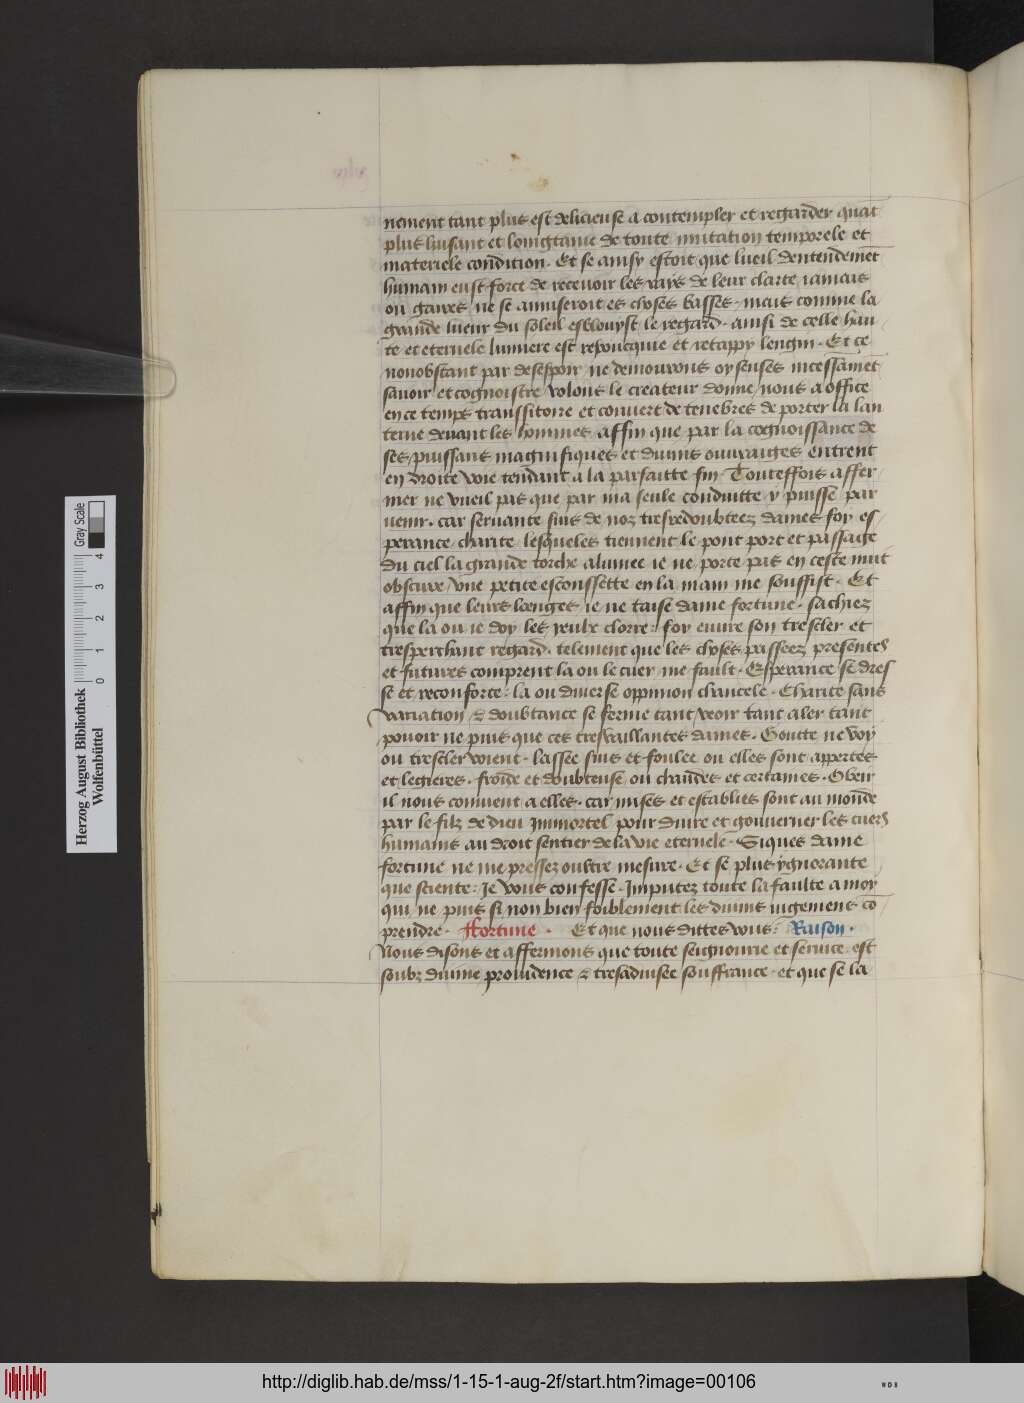 nement tant plus est delicieuse a contempler et regarder quāt
plus luisant et loingtaine de toute mutation temporele et
materiele condition. Et se ainsy estoit que lueil dentendemēt
humain eust force de recevoir les rays de leur clarte iamais
ou gaires ne se amuseroit es choses basses. mais comme la
grande lueur du soleil esblouyst le regard. ainsi de celle hau
te et eternele lumiere est repoucquie et retappy lengin. Et ce
nonobstant par desespoir ne demourons oyseuses incessāmēt
savoir et cognoistre volons le createur donne nous a office
en ce temps transsitoire et couvert de tenebres de porter la lan
terne devant les hommes affin que par la cognoissance de
ses puissans magnifiques et divins ouvraiges entrent
en droite voie tendant a la parfaitte fin. Touteffois affer
mer ne vueil pas que par ma seule conduitte y puisse par
uenir. car servante suis de noz tresredoubteez dames foy es
perance charite lesqueles tiennent le pont port et passage
du ciel la grande torche alumee ie ne porte pas en ceste nuit
obscure / une petite esconssette en la main me souffist. Et
affin que leurs loenges ie ne taise dame fortune. sachiez
que la ou ie doy les yeulx clorre: foy euvre son trescler et
tresperchant regard. telement que les choses passeez presentes
et futures comprent la ou le cuer me fault. Esperance se dres
se et reconforte: la ou diverse oppinion chancele. Charite sans
variation & doubtance se ferme tant veoir tant aler tant
pouoir ne puis que ces tresvaillantes dames. Goutte ne voy
ou trescler voient. lassee suis et foulee ou elles sont appertes
et legieres. froide et doubteuse ou chaudes et certaines. Obeir
il nous convient a elles. car mises et establies sont au monde
par le filz de dieu Immortel pour duire et gouverner les cuers
humains au droit sentier de la vie eternele. Siques dame
fortune ne me pressez oultre mesure. Et se plus ygnorante
que sciente: Je vous confesse. Imputez toute la faulte a moy
qui ne puis si non bien foiblement les divins iugemens cō
prendre. Ffortune. Et que nous dittes vous: Raison.
Nous disons et affermons que toute seignourie et service est
soubz divine providence & tresadvisee souffrance. et que se la
Herzog August Bibliothek
Wolfenbüttel
0 1 2 3 4
Gray Scale
http://diglib.hab.de/mss/1-15-1-aug-2f/start.htm?image=00106
WDB